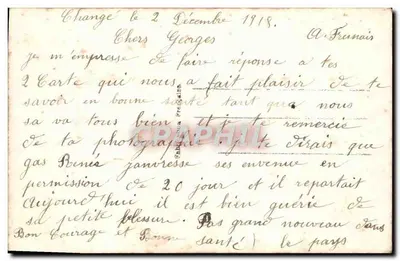 Changé le 2 Décembre 1918.
Chers Georges A. Frunais
je m'empresse de faire réponse a tes
2 Carte qui nous a fait plaisir de te
savoir en bonne santé tant que nous
sa va tous bien et je te remercie
de ta photographie je te dirais que
gas janvresse ses envenue en
permission de 20 jour et il repartait
Aujourd'hui il est bien guérie de
sa petit blessure. Pas grand nouveau dans
Bon Courage et Bonne santé le pays
CPAPHIL
Fabrication Française